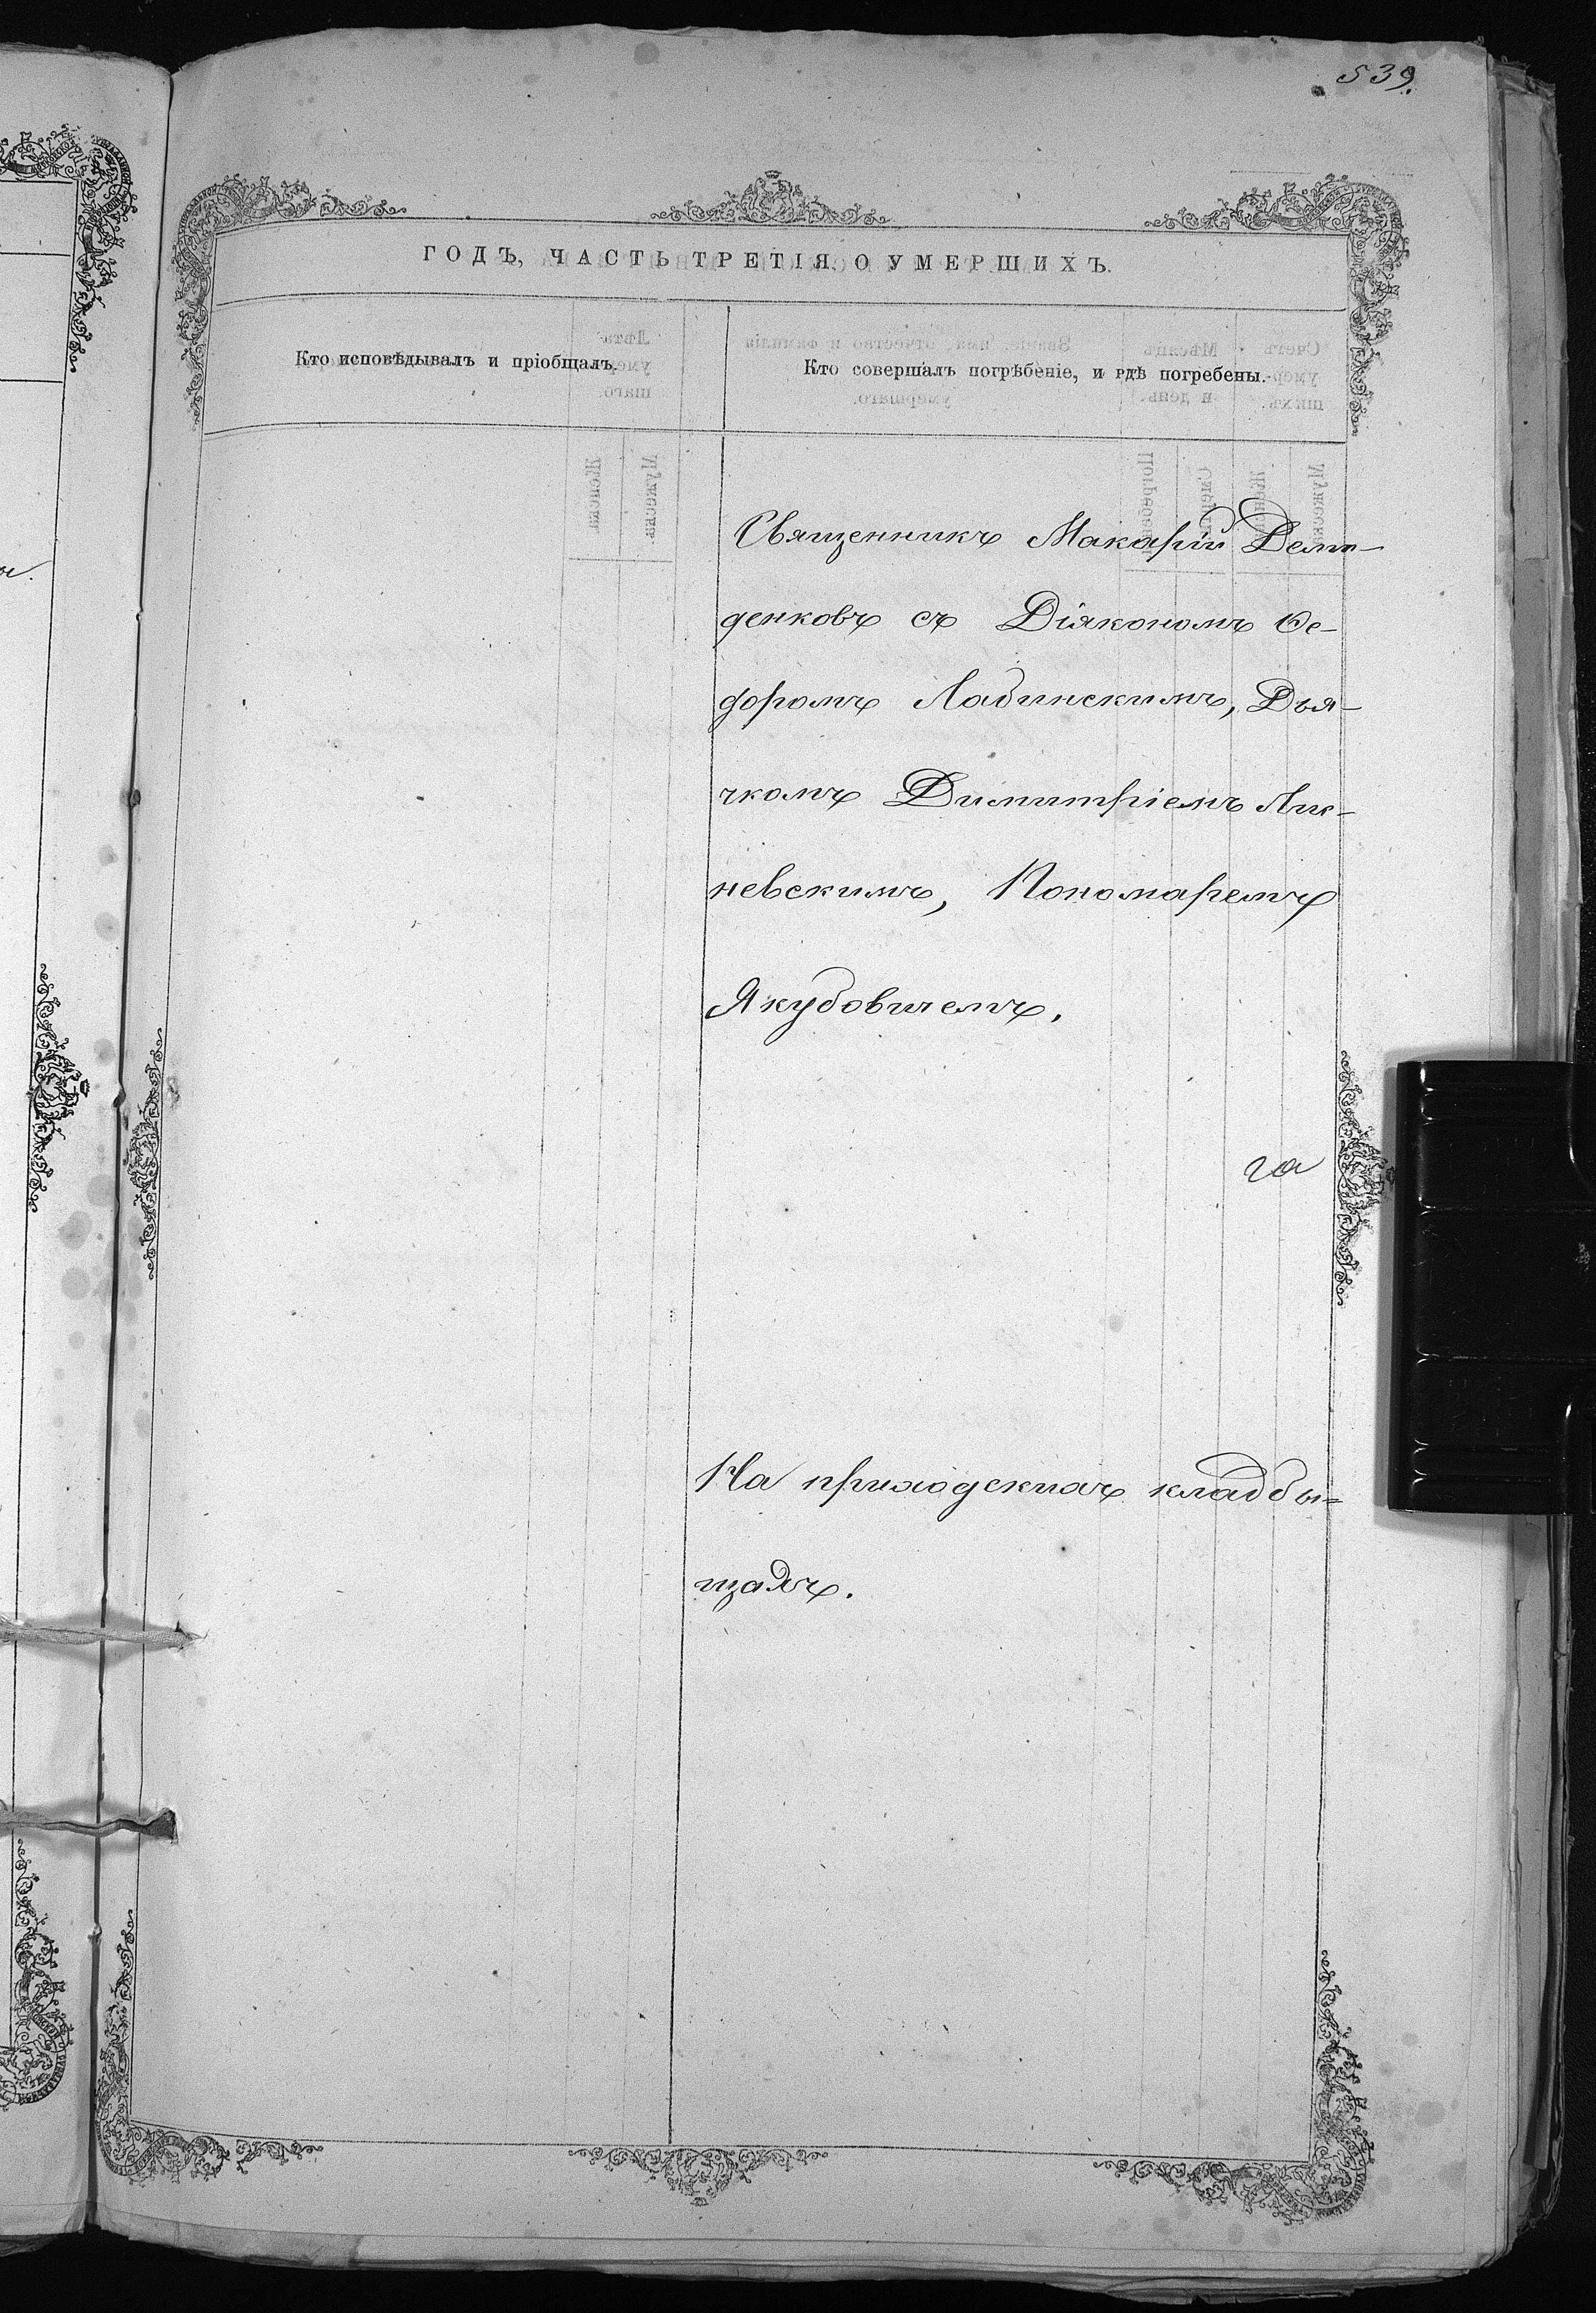 539.
ГОДЪ, ЧАСТЬ ТРЕТІЯ, О УМЕРШИХЪ.
Кто исповѣдывалъ и пріобщалъ.
Кто совершалъ погрѣбеніе, и гдѣ погребены.
Священникъ Макарій Деми-
денковъ съ Діякономъ Ѳе-
доромъ Лабинскимъ, Дья-
чкомъ Димитріемъ Лис-
невскимъ, Пономаремъ
Якубовичемъ.
На приходскихъ кладбы-
щахъ.